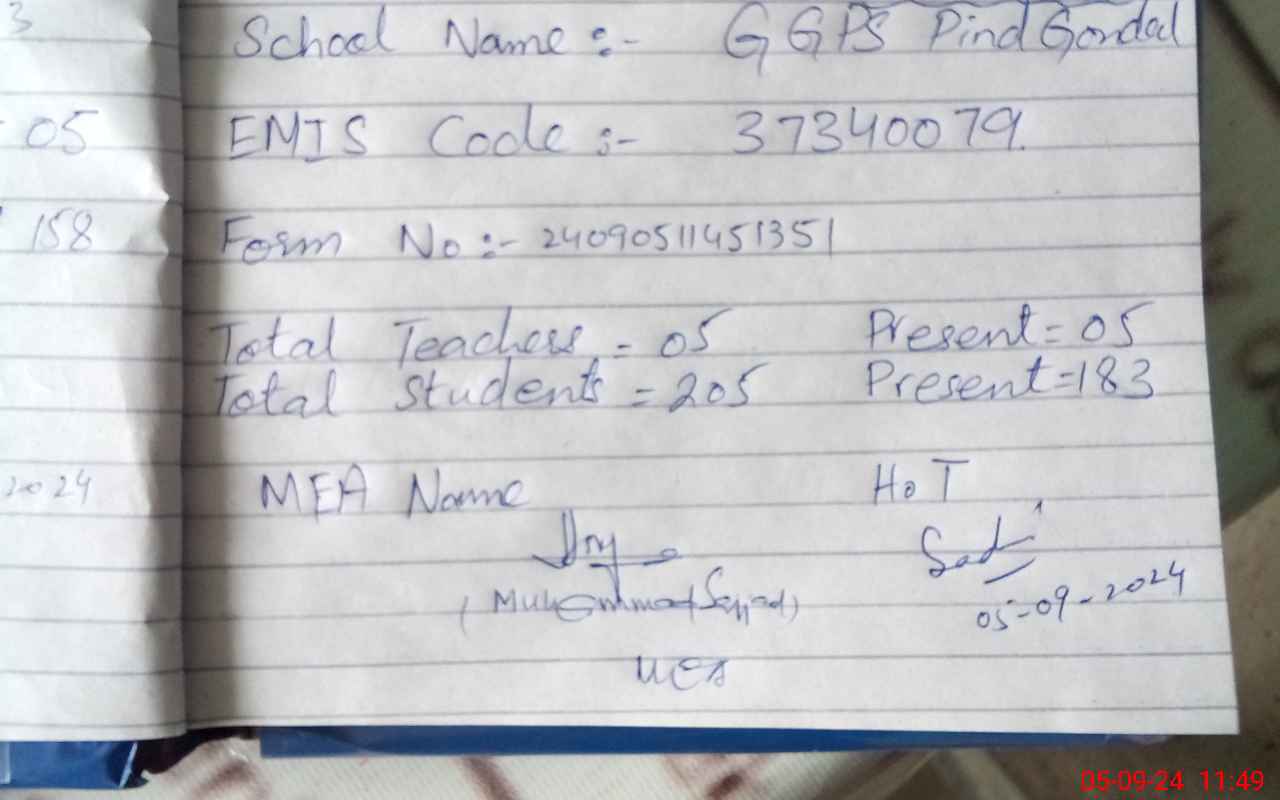 3
School Name :- GGPS Pind Gondal
05
EMIS Code :- 37340079.
158
Form No :- 24090511451351
Total Teachers = 05 Present = 05
Total Students = 205 Present = 183
2024
MEA Name HoT
Sadi
(Muhammad Sajjad) 05-09-2024
MEA
05-09-24 11:49